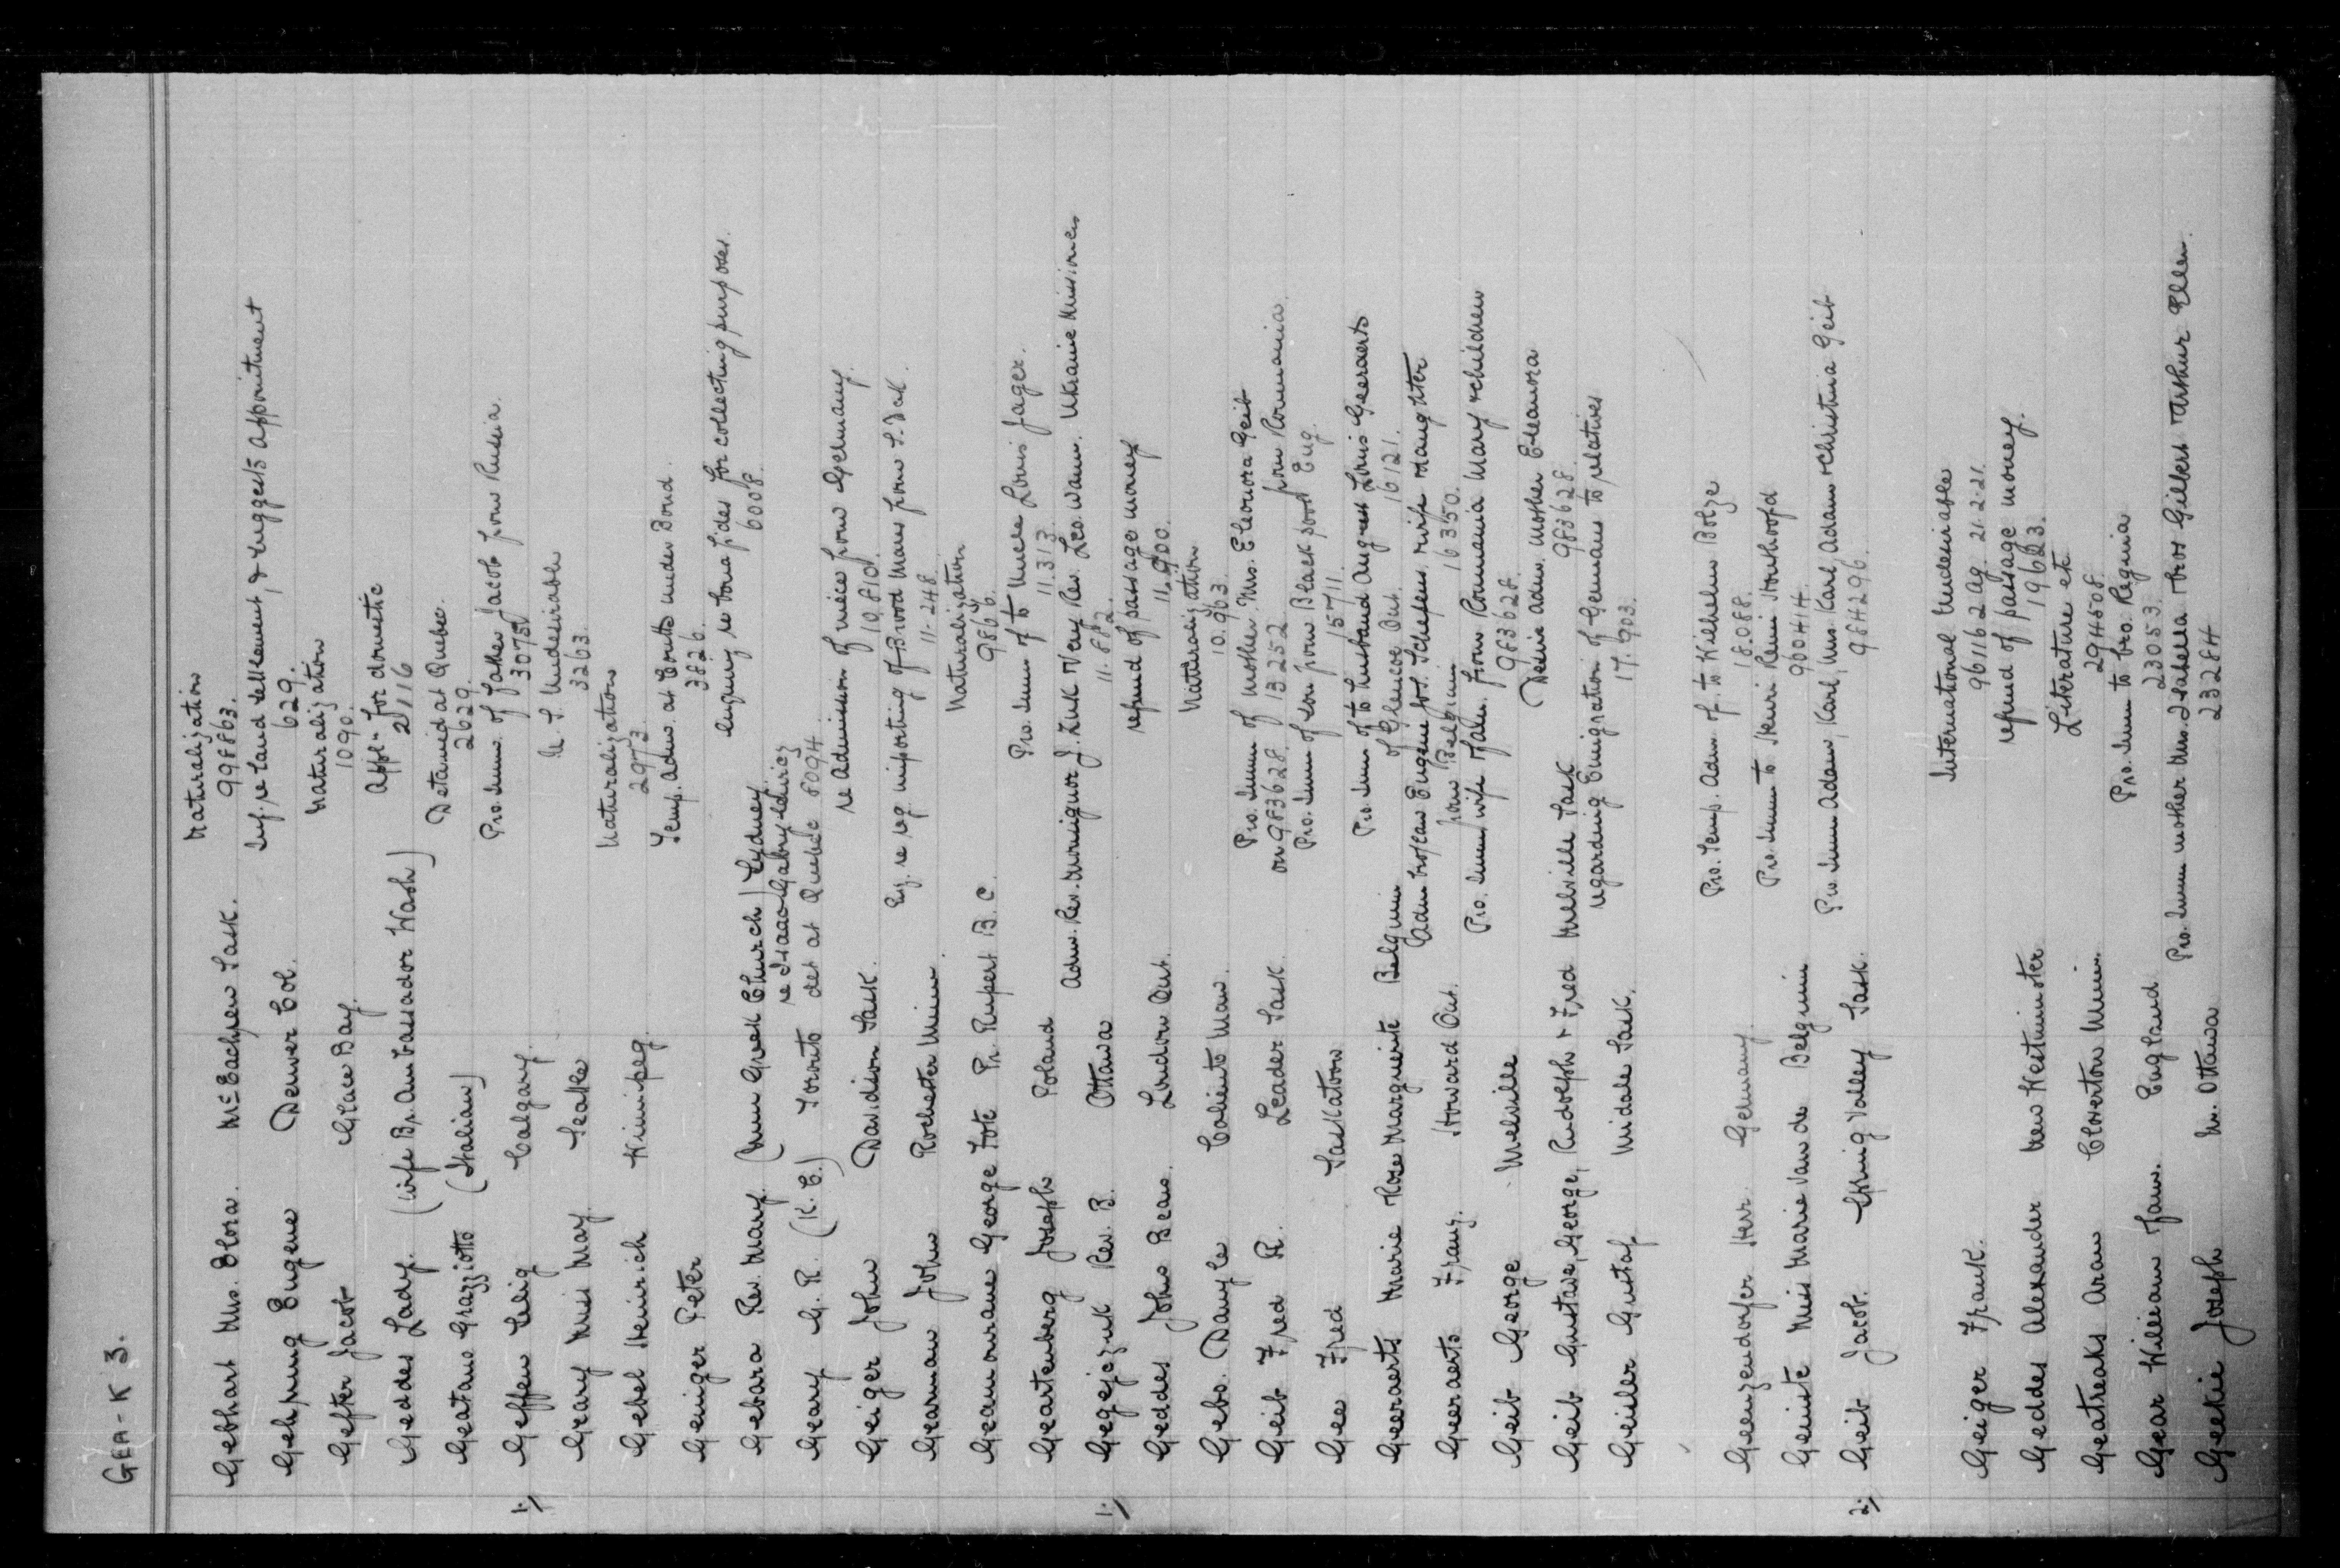 GEA-K 3.
Naturalization
Gebhart Mrs. Dora. McEachren Sask. 998863.
Inf. re land settlement, & suggests appointment
Gehrung Eugene Denver Col. 629.
Naturalization
Gefter Jacob Glace Bay. 1090.
Appl- for domestic
Geddes Lady. (wife Br. Ambassador Wash) 2116
Detained at Quebec.
Geatano Grazziotto (Italian) 2629.
Pro. Imm. of father Jacob from Russia.
1.) Geffen Zelig Calgary. 3075
U. S. Undesirable
Geary Miss May. Seattle 3263.
Naturalization
Gebel Heinrich Winnipeg. 2973.
Temp. Adm. at Coutts under Bond.
Geiniger Peter 3826.
enquiry re bona fides for collecting purposes.
Gebara Rev. Mary. (Imm Greek Church) Sydney. 6008.
re Isaac Gabrylewicz
Geary G. R. (K. C.) Toronto det at Quebec 8094.
re Admission of niece from Germany.
Geiger John Davidson Sask. 10.810.
Enq. re reg importing of Brood Mares from S. Dak.
Gearman John Rochester Minn. 11-248.
Naturalization
Geamourane George Fote Pr. Rupert B. C. 9866.
Pro. Imm of to Uncle Louis Jager.
Geartenberg Joseph Poland 11.313.
Adm. Rev. Monsignor J. Zuk & Very Rev. Leo. Wann. Ukraine Missioners
1.) Gegejczuk Rev. B. Ottawa 11.882.
refund of passage money
Geddes John Beans. London Ont. 11.900.
Naturalization
Gebo. Danylo Caliento Man. 10.963.
Pro. Imm of mother Mrs. Eleonora Geib
Geib Fred R. Leader Sask. on 983628. 13252 from Roumania.
Pro. Imm of son from Blackpool Eng.
Gee Fred Saskatoon 15711.
Pro. Imm of to husband August Louis Geeraerts
Geeraerts Marie & Rose Marguerite Belgium of Glencoe Ont. 16121.
Adm bro/law Eugene Jos. Scheffens, wife & daughter
Geeraerts Franz. Howard Ont. from Belgium 16350.
Pro. Imm wife & fam. from Roumania Mary & children
Geib George Melville 983628.
Desire adm. mother Eleanora
Geib Gustave, George, Rudolph & Fred Melville Sask 983628.
regarding Emigration of Germans to relatives
Geisler Gustaf Midale Sask. 17.903.
Pro. Temp. Adm. of. to Wilhelm Bolze
Geenzendorfer Herr Germany. 18.088.
Pro Imm to Henri Remi Houthoofd
Geinite Miss Marie Van de Belgium 900414.
Pro Imm Adam, Karl, Mrs. Karl, Adam & Christina Geib
2.) Geib Jacob. Spring Valley Sask. 984296.
International Undesirable
Geiger Frank. 961162 Ag. 21.2.21.
refund of passage money.
Geddes Alexander New Westminster 19623.
Literature etc.
Geatreaks Aram Cloverton Minn. 294508.
Pro. Imm to bro. Regina
Gear William & fam. England 23053.
Pro. Imm mother Mrs. Isabella & bros Gilbert & Arthur Ellen.
Geekie Joseph Nr. Ottawa 23284